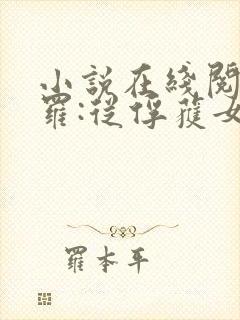 小説在綫閱
羅:從俘獲女
羅本平